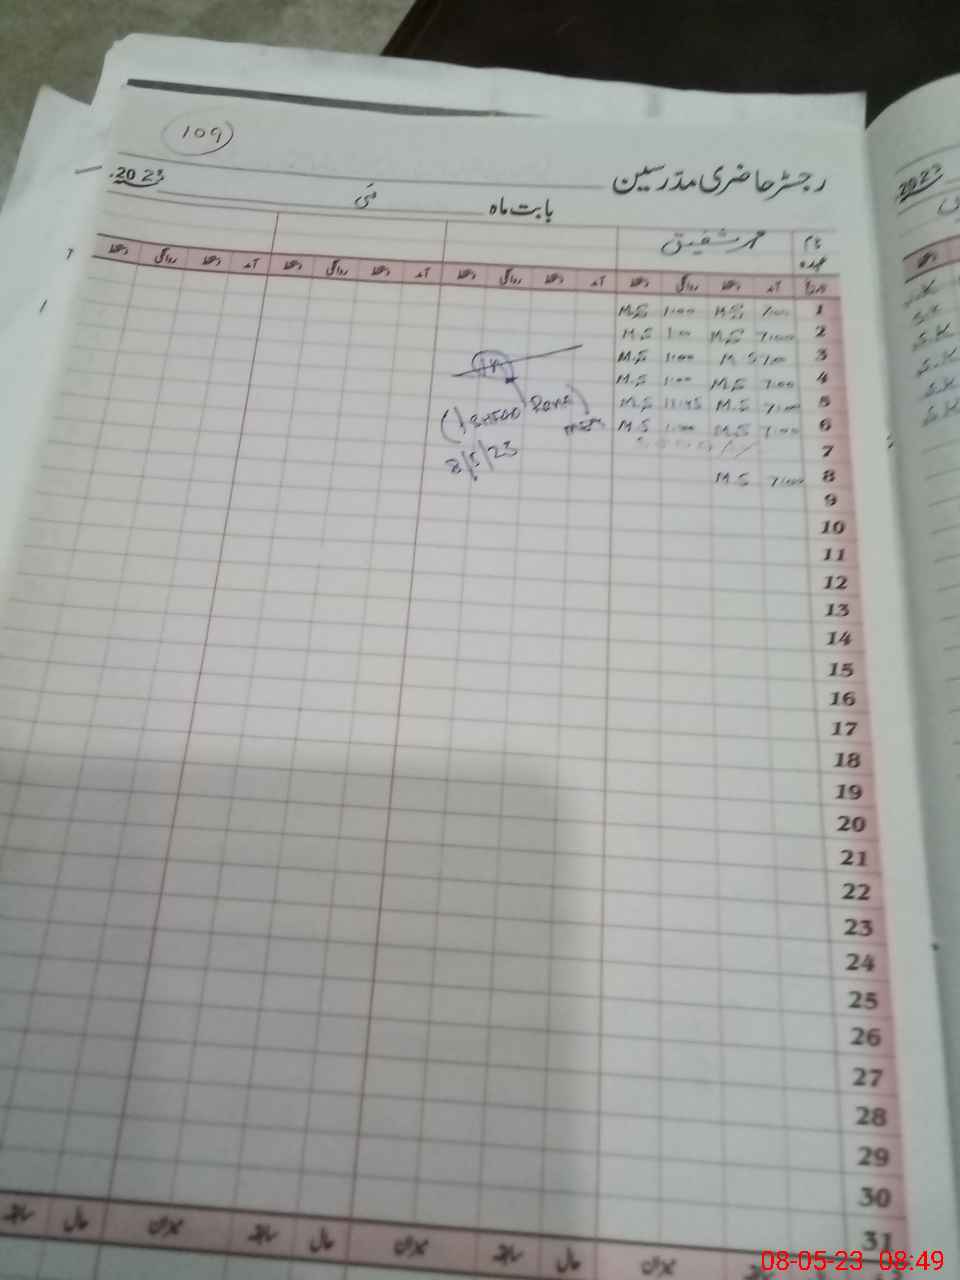 109
رجسٹر حاضری مدرسین
2023
بابت ماہ مئی
نام عہدہ محمد شفیق
تاریخ آمد دستخط روانگی دستخط آمد دستخط روانگی دستخط آمد دستخط روانگی دستخط
1 7:00 M.S 1:00 M.S
2 7:00 M.S 1:00 M.S
3 7:00 M.S 1:00 M.S
4 7:00 M.S 1:00 M.S
5 7:00 M.S 11:45 M.S
6 7:00 M.S 1:00 M.S
7 Sunday
8 7:00 M.S
8/5/23
9
10
11
12
13
14
15
16
17
18
19
20
21
22
23
24
25
26
27
28
29
30
31
میزان
میزان
میزان
2023
S.K
S.K
S.K
S.K
08-05-23 08:49